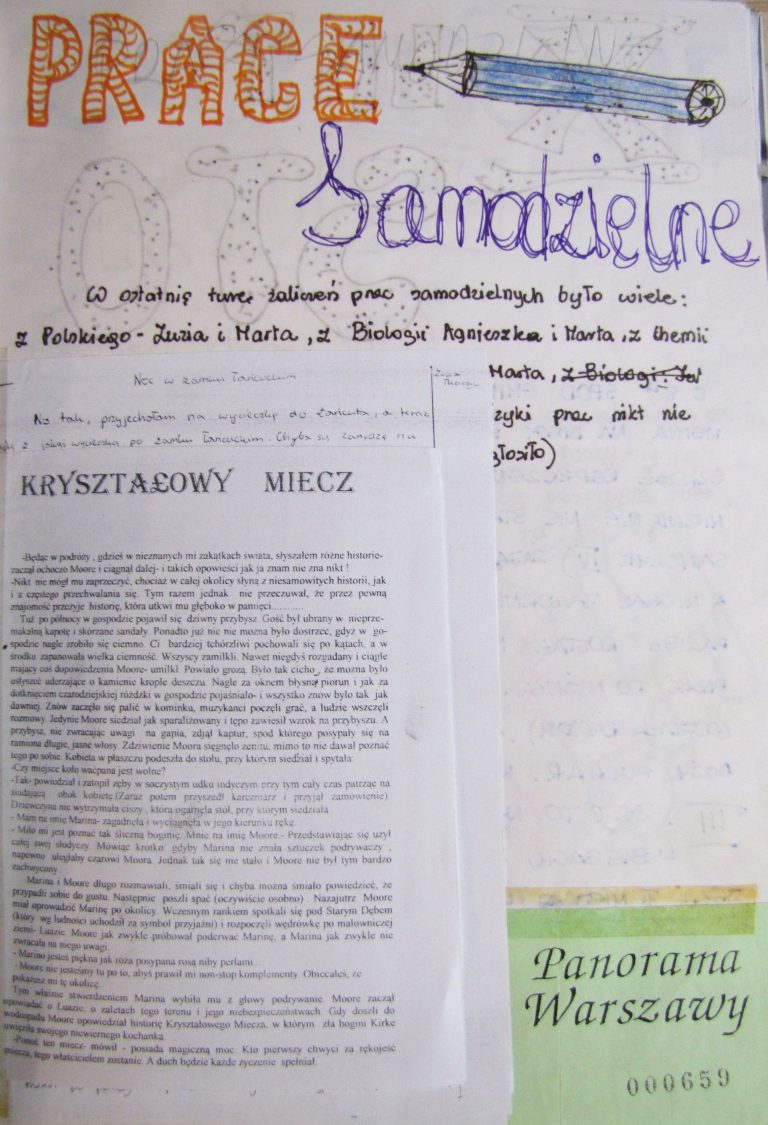 PRACE
Samodzielne
W ostatnię turę zaliczeń prac samodzielnych było wiele:
z Polskiego - Zuzia i Marta, z Biologii Agnieszka i Marta, z Chemii
Marta, z Biologi.
zyki prac nikt nie
głosiło)
Noc w zamku Łańcuckim
No tak, przyjechałam na wycieczkę do Łańcuta, a teraz
wycieczka po zamku Łańcuckim. Chyba się zanudzę na
KRYSZTAŁOWY MIECZ
-Będąc w podróży , gdzieś w nieznanych mi zakątkach świata, słyszałem różne historie-
zaczął ochoczo Moore i ciągnął dalej- i takich opowieści jak ja znam nie zna nikt !
-Nikt nie mógł mu zaprzeczyć, chociaż w całej okolicy słyną z niesamowitych historii, jak
i z częstego przechwalania się. Tym razem jednak nie przeczuwał, że przez pewną
znajomość przeżyje historię, która utkwi mu głęboko w pamięci............
Tuż po północy w gospodzie pojawił się dziwny przybysz. Gość był ubrany w nieprze-
makalną kapotę i skórzane sandały. Ponadto już nic nie można było dostrzec, gdyż w go-
spodzie nagle zrobiło się ciemno. Ci bardziej tchórzliwi pochowali się po kątach, a w
środku zapanowała wielka ciemność. Wszyscy zamilkli. Nawet niegdyś rozgadany i ciągle
mający coś dopowiedzenia Moore- umilkł. Powiało grozą. Było tak cicho, że można było
usłyszeć uderzające o kamienie krople deszczu. Nagle za oknem błysnął piorun i jak za
dotknięciem czarodziejskiej różdżki w gospodzie pojaśniało- i wszystko znów było tak jak
dawniej. Znów zaczęło się palić w kominku, muzykanci poczęli grać, a ludzie wszczęli
rozmowy. Jedynie Moore siedział jak sparaliżowany i tępo zawiesił wzrok na przybyszu. A
przybysz, nie zwracając uwagi na gapia, zdjął kaptur, spod którego posypały się na
ramiona długie, jasne włosy. Zdziwienie Moora sięgnęło zenitu, mimo to nie dawał poznać
tego po sobie. Kobieta w płaszczu podeszła do stołu, przy którym siedział i spytała:
-Czy miejsce koło waćpana jest wolne?
-Tak- powiedział i zatopił zęby w soczystym udku indyczym przy tym cały czas patrząc na
siadającą obok kobietę.(Zaraz potem przyszedł karczmarz i przyjął zamówienie).
Dziewczyna nie wytrzymała ciszy , która ogarnęła stół, przy którym siedziała .
- Mam na imię Marina- zagadnęła i wyciągnęła w jego kierunku rękę.
- Miło mi jest poznać tak śliczną boginię. Mnie na imię Moore.- Przedstawiając się użył
całej swej słodyczy. Mówiąc krótko: gdyby Marina nie znała sztuczek podrywaczy ,
napewno uległaby czarowi Moora. Jednak tak się nie stało i Moore nie był tym bardzo
zachwycony.
Marina i Moore długo rozmawiali, śmiali się i chyba można śmiało powiedzieć, że
przypadli sobie do gustu. Następnie poszli spać (oczywiście osobno) . Nazajutrz Moore
miał oprowadzić Marinę po okolicy. Wczesnym rankiem spotkali się pod Starym Dębem
(który wg ludności uchodził za symbol przyjaźni) i rozpoczęli wędrówkę po malowniczej
ziemi- Luazie. Moore jak zwykle próbował poderwać Marinę, a Marina jak zwykle nie
zwracała na niego uwagi.
- Marino jesteś piękna jak róża posypana rosą niby perłami...
- Moore nie jesteśmy tu po to, abyś prawił mi non-stop komplementy. Obiecałeś, że
pokażesz mi tę okolicę.
Tym właśnie stwierdzeniem Marina wybiła mu z głowy podrywanie. Moore zaczął
opowiadać o Luazie, o zaletach tego terenu i jego niebezpieczeństwach. Gdy doszli do
wodospadu Moore opowiedział historię Kryształowego Miecza, w którym zła bogini Kirke
uwięziła swojego niewiernego kochanka.
-Ponoć ten miecz- mówił - posiada magiczną moc. Kto pierwszy chwyci za rękojeść
miecza, tego właścicielem zostanie. A duch będzie każde życzenie spełniał.
Panorama
Warszawy
000659